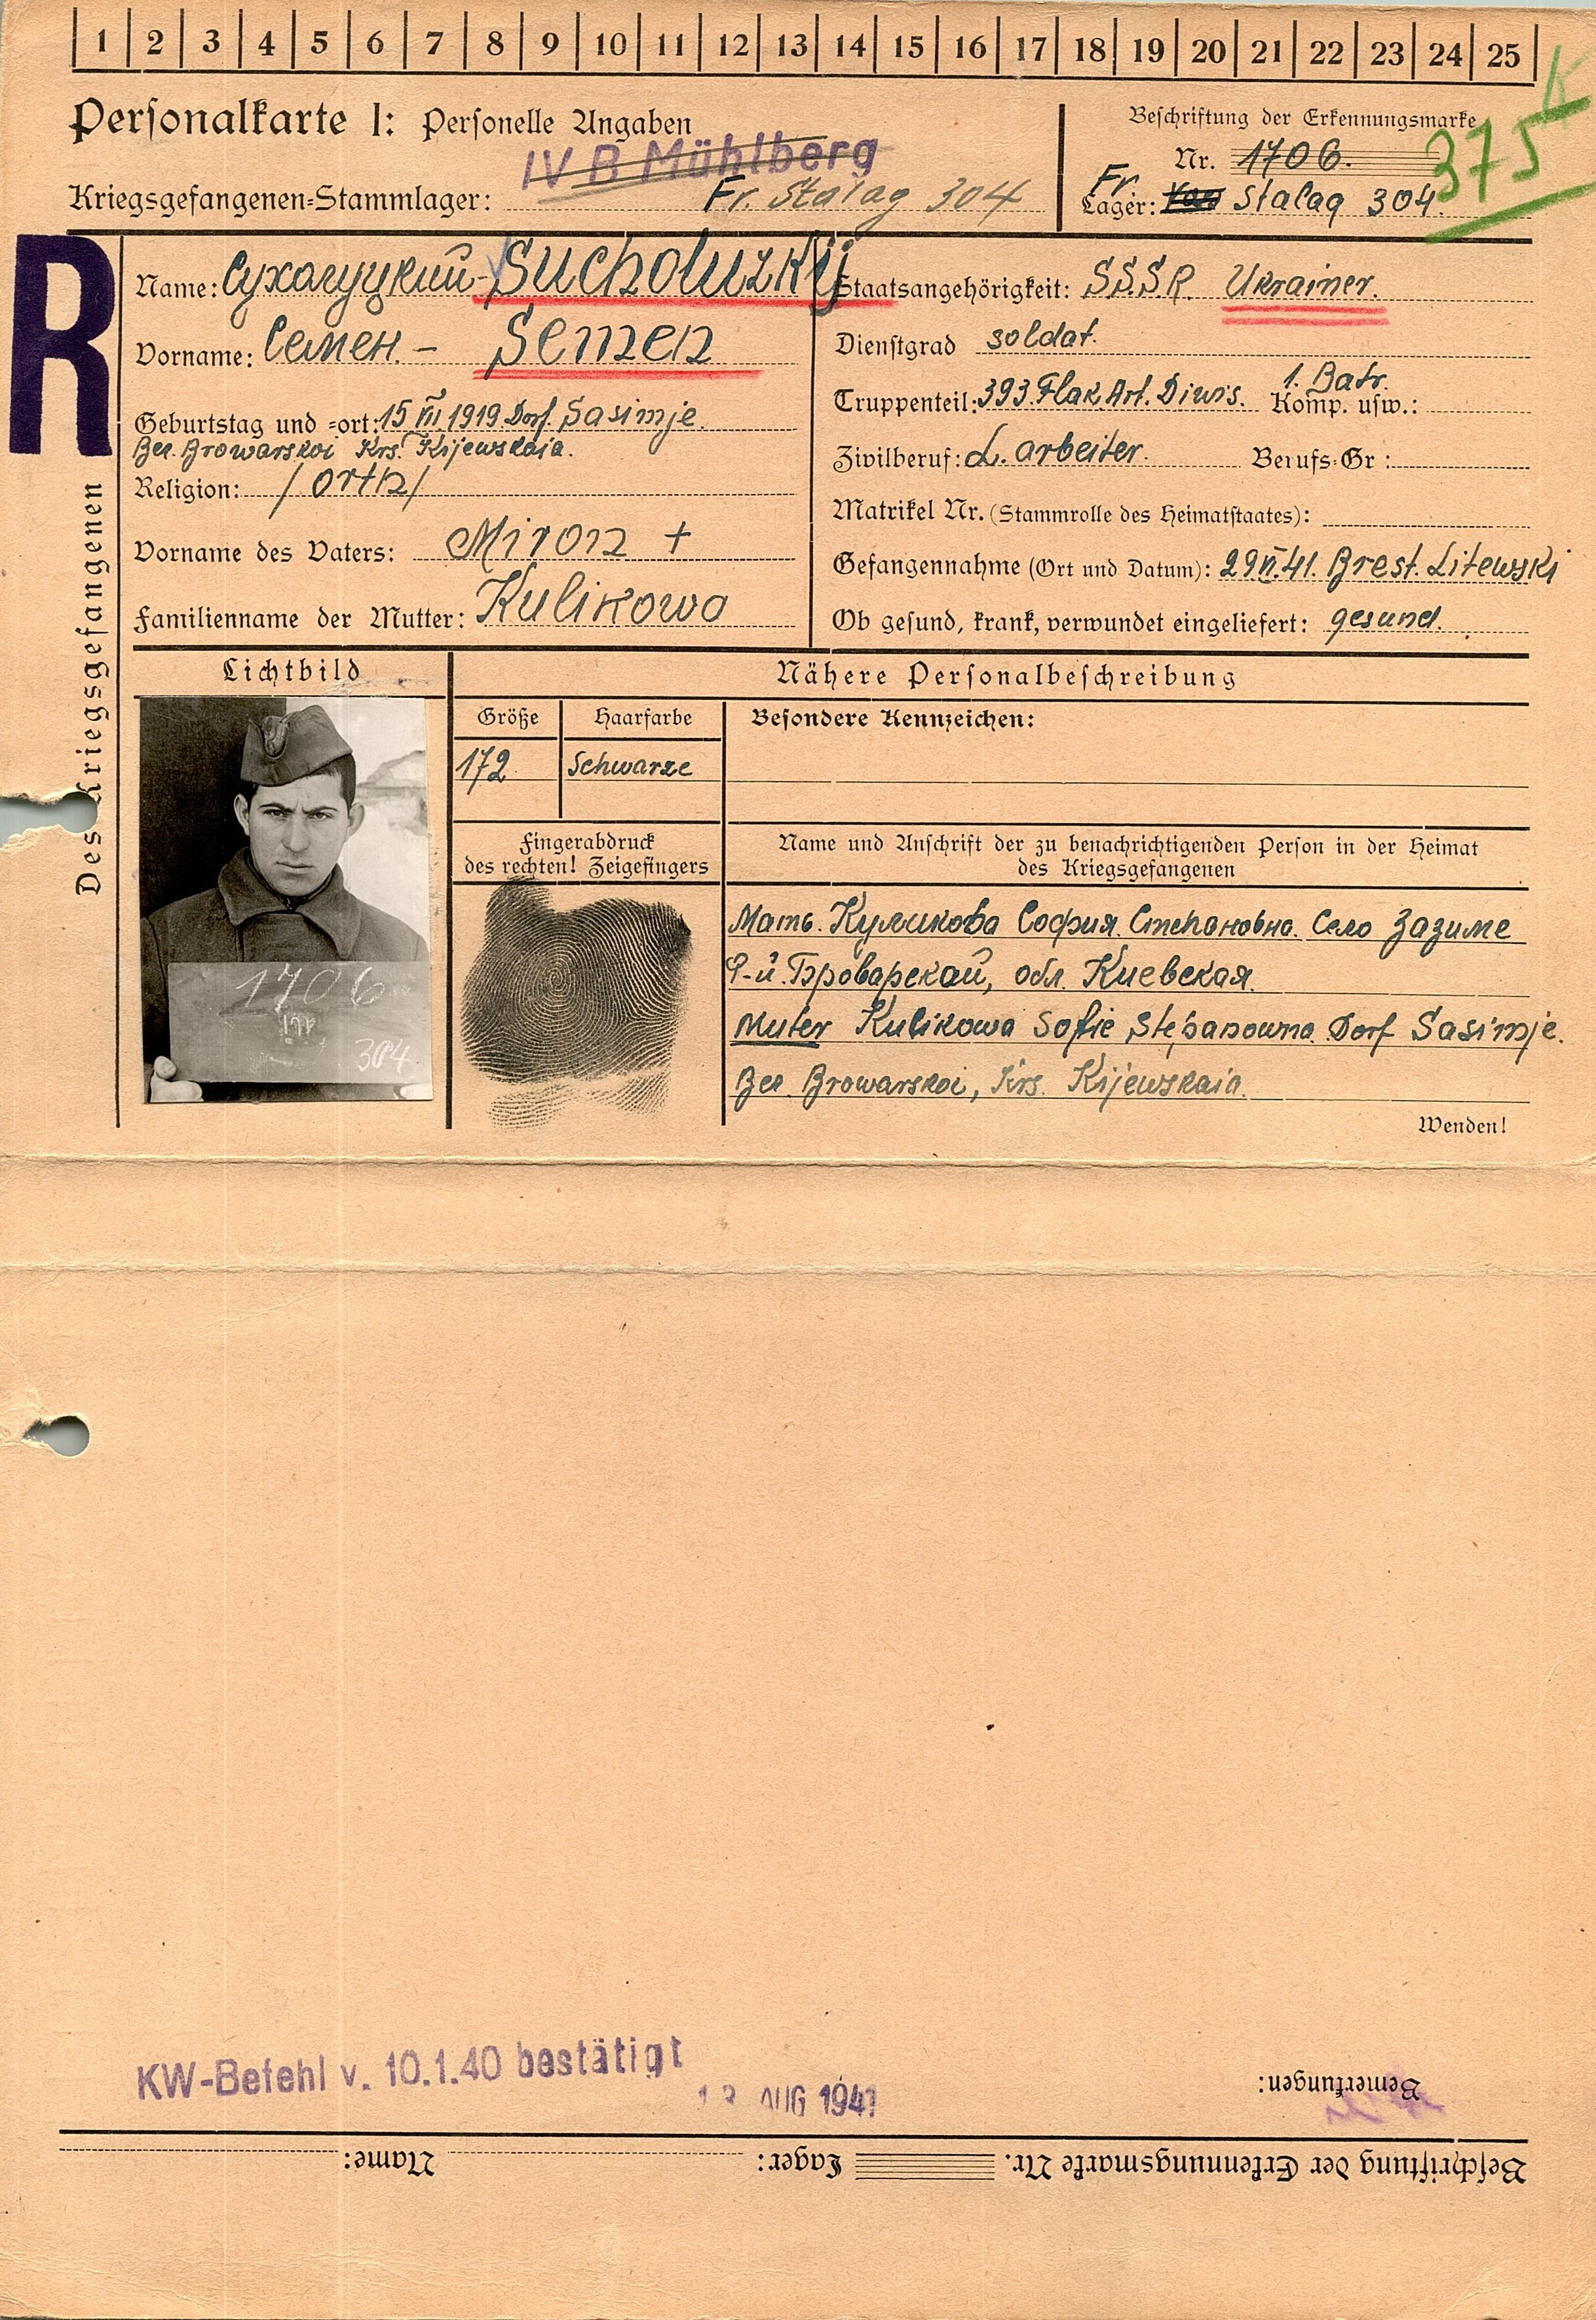 1 2 3 4 5 6 7 8 9 10 11 12 13 14 15 16 17 18 19 20 21 22 23 24 25
Personalkarte I: Personelle Angaben
IV B Mühlberg
Kriegsgefangenen-Stammlager: Fr. Stalag 304
Beschriftung der Erkennungsmarke
Nr. 1706.
375
Fr.
Lager: Stalag 304.
R
Des Kriegsgefangenen
Name: Сухолуцкий - Sucholuzkij
Vorname: Семен. - Semen
Geburtstag und -ort: 15 VII. 1919. Dorf Sasimje.
Bez. Browarskoi Krs. Kijewskaia.
Religion: /orth/
Vorname des Vaters: Miron +
Familienname der Mutter: Kulikowa
Staatsangehörigkeit: S.S.S.R. Ukrainer.
Dienstgrad soldat.
Truppenteil: 393. Flak. Art. Diwis. Komp. usw.: 1. Batr.
Zivilberuf: L. arbeiter. Berufs-Gr:
Matrikel Nr. (Stammrolle des Heimatstaates):
Gefangennahme (Ort und Datum): 29 VI. 41. Brest. Litewski
Ob gesund, krank, verwundet eingeliefert: gesund.
Lichtbild
Nähere Personalbeschreibung
Größe Haarfarbe
172 Schwarze
Besondere Kennzeichen:
1706
304
Fingerabdruck
des rechten! Zeigefingers
Name und Anschrift der zu benachrichtigenden Person in der Heimat
des Kriegsgefangenen
Мать. Куликова София. Степановна. Село Зазиме
Р-й. Броварской, обл. Киевская.
Muter Kulikowa Sofie Stepanowna. Dorf Sasimje.
Bez. Browarskoi, Krs. Kijewskaia.
Wenden!
KW-Befehl v. 10.1.40 bestätigt
AUG 1941
Bemerkungen:
Beschriftung der Erkennungsmarke Nr. Lager: Name: